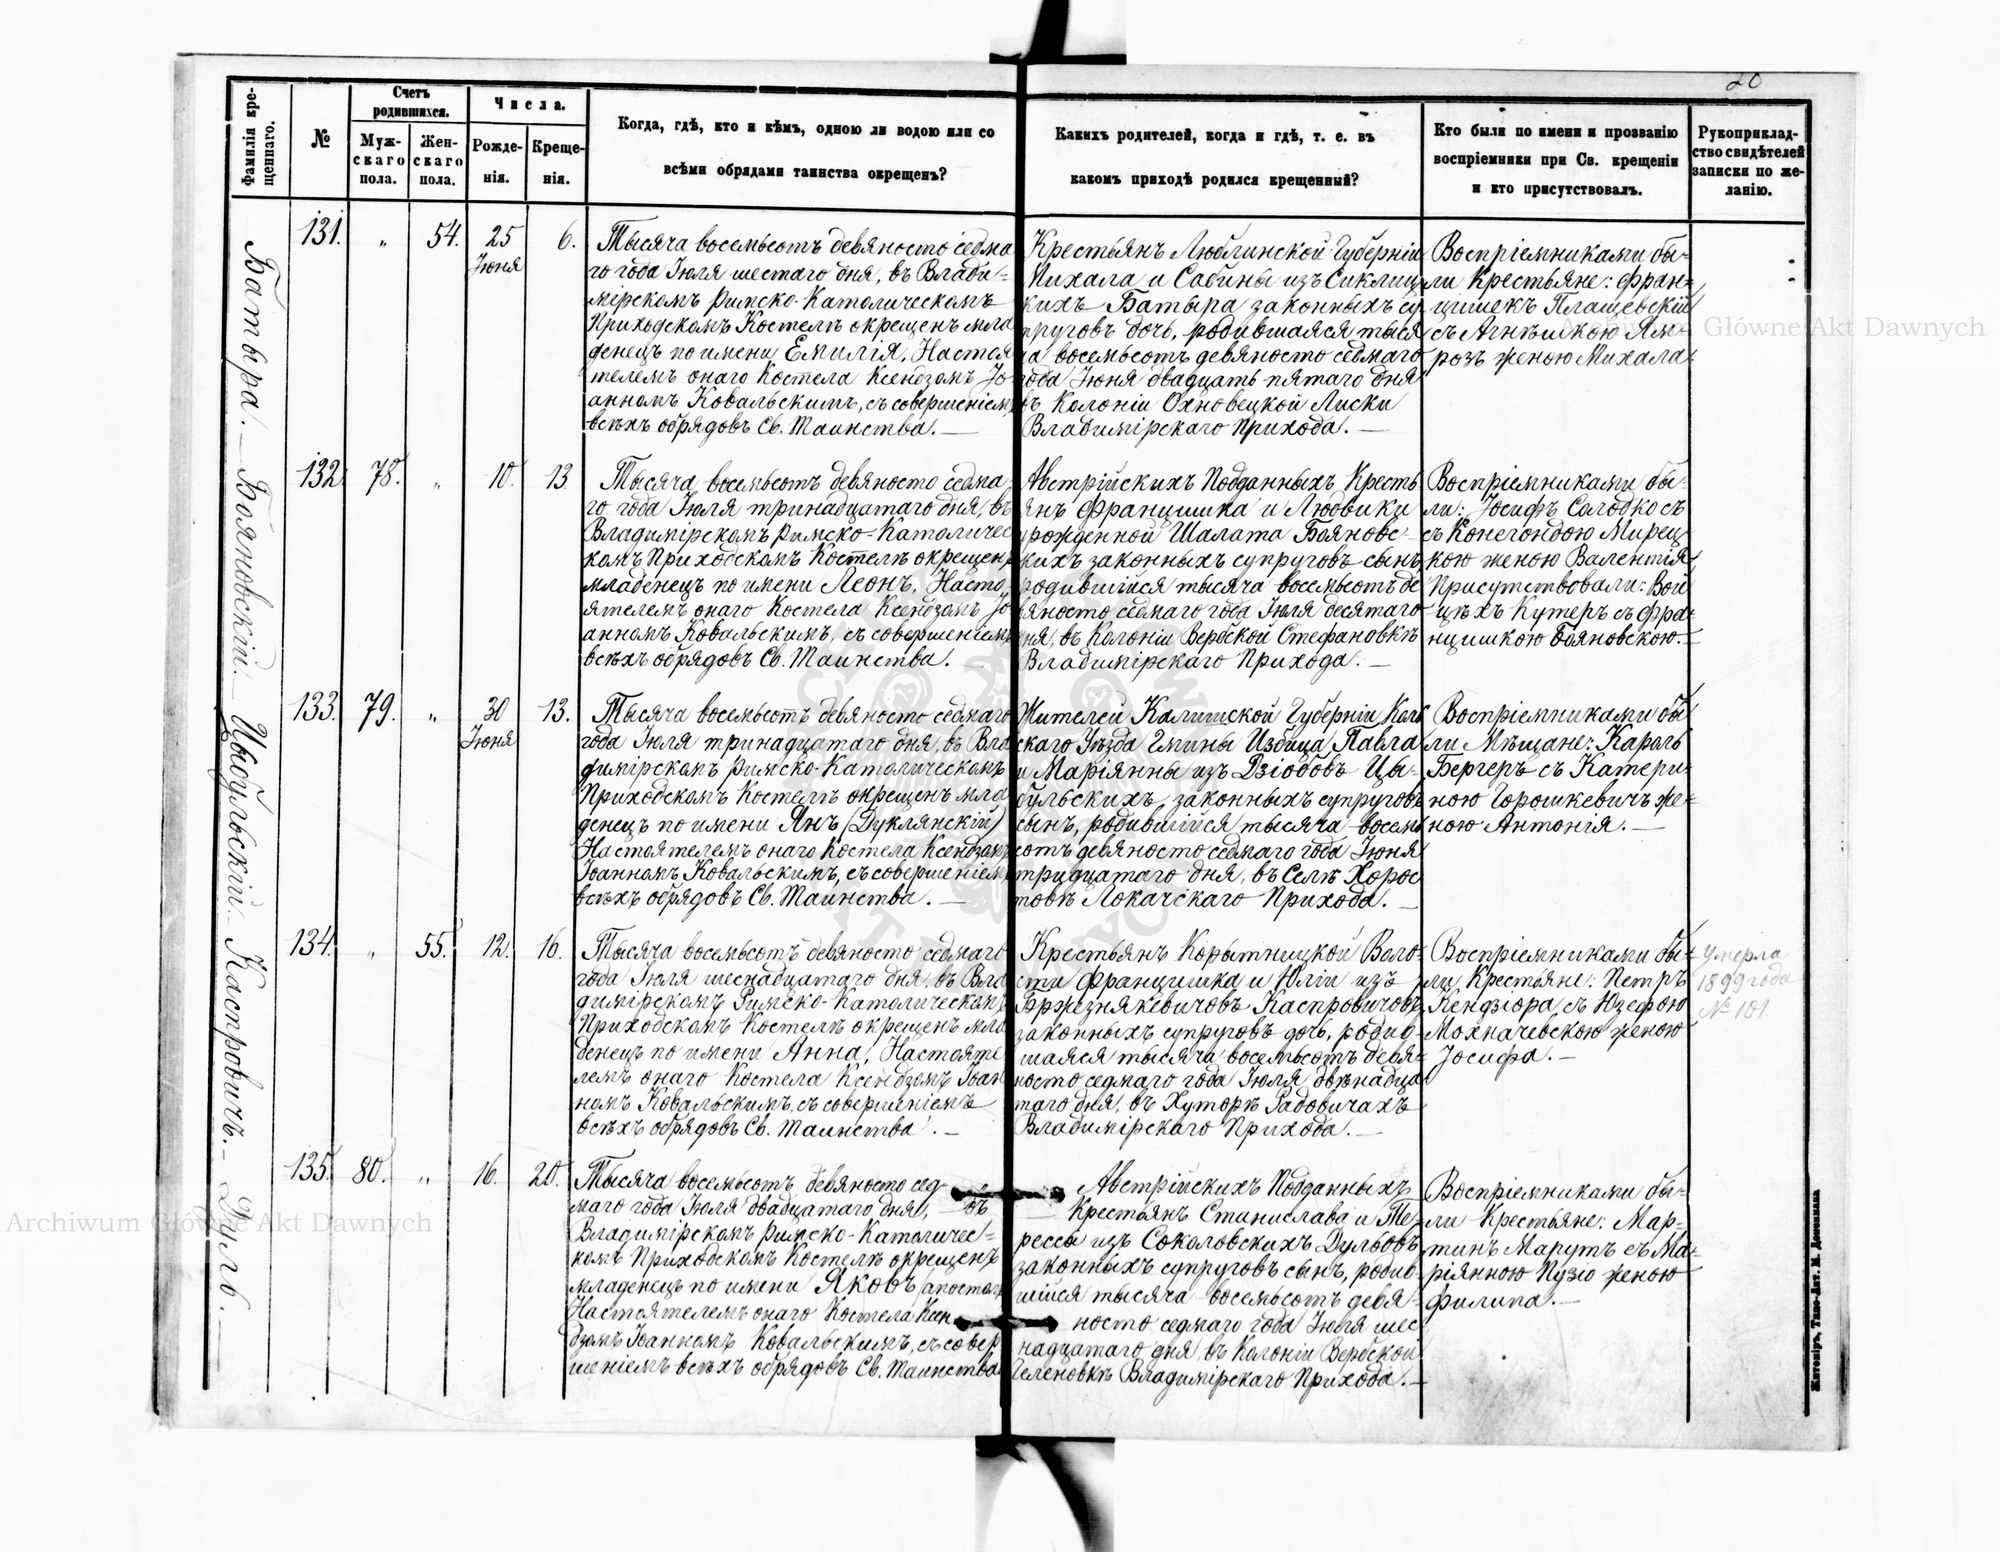 20
Фамилія кре-
щеннаго.
№
Счетъ
родившихся.
Муж-
скаго
пола.
Жен-
скаго
пола.
Числа.
Рожде-
нія.
Креще-
нія.
Когда, гдѣ, кто и кѣмъ, одною ли водою или со
всѣми обрядами таинства окрещенъ?
Какихъ родителей, когда и гдѣ, т. е. въ
какомъ приходѣ родился крещенный?
Кто были по имени и прозванію
воспріемники при Св. крещеніи
и кто присутствовалъ.
Рукоприклад-
ство свидѣтелей
записки по же-
ланію.
Батыра. — Бояновскій. — Цыбульскій. — Каспровичъ. — Дуль. —
131. „ 54. 25 Іюня 6.
Тысяча восемьсотъ девяносто седма
го года Іюля шестаго дня, въ Влади-
мірскомъ Римско-Католическомъ
Приходскомъ Костелѣ окрещенъ мла
денецъ по имени Емилія, Настоя
телемъ онаго Костела Ксендзомъ Іо-
анномъ Ковальскимъ, съ совершеніемъ
всѣхъ обрядовъ Св. Таинства. —
Крестьянъ Люблинской Губерніи
Михала и Сабины изъ Сиклиц
кихъ Батыра законныхъ су
пруговъ дочь, родившаяся тыся
ча восемьсотъ девяносто седмаго
года Іюня двадцать пятаго дня
въ Колоніи Охновецкой Лиски
Владимірскаго Прихода. —
Воспріемниками бы-
ли Крестьяне: Фран-
цишекъ Плащевскій
съ Агнѣшкою Ям-
розъ женою Михала
132. 78. „ 10. 13
Тысяча восемьсотъ девяносто седма
го года Іюля тринадцатаго дня, въ
Владимірскомъ Римско-Католичес
комъ Приходскомъ Костелѣ окрещенъ
младенецъ по имени Леонъ, Насто-
ятелемъ онаго Костела Ксендзомъ Іо
анномъ Ковальскимъ, съ совершеніемъ
всѣхъ обрядовъ Св. Таинства. —
Австрійскихъ Подданныхъ Кресть
янъ Францишка и Людвики
урожденной Шалата Бояновс-
кихъ законныхъ супруговъ сынъ,
родившійся тысяча восемьсотъ де
вяносто седмаго года Іюля десятаго
дня, въ Колоніи Вербской Стефановкѣ
Владимірскаго Прихода. —
Воспріемниками бы-
ли: Іосифъ Солодко съ
съ Конегондою Мирец
кою женою Валентія
Присутствовали: Вой
цѣхъ Кутеръ съ Фра-
нцишкою Бояновскою. —
133. 79. „ 30 Іюня 13.
Тысяча восемьсотъ девяносто седмаго
года Іюля тринадцатаго дня, въ Вла
димірскомъ Римско-Католическомъ
Приходскомъ Костелѣ окрещенъ мла
денецъ по имени Янъ (Дуклянскій)
Настоятелемъ онаго Костела Ксендзомъ
Іоанномъ Ковальскимъ, съ совершеніемъ
всѣхъ обрядовъ Св. Таинства. —
Жителей Калишской Губерніи Коль
скаго Уѣзда Гмины Избица Павла
и Маріянны изъ Дзіобовъ Цы-
бульскихъ, законныхъ супруговъ
сынъ, родившійся тысяча восемь
сотъ девяносто седмаго года Іюня
тридцатаго дня, въ Селѣ Хорос
товѣ Локачскаго Прихода. —
Воспріемниками бы
ли Мѣщане: Кароль
Бергеръ съ Катери-
ною Горошкевичъ же-
ною Антонія. —
134. „ 55. 12. 16.
Тысяча восемьсотъ девяносто седмаго
года Іюля шеснадцатаго дня, въ Вла
димірскомъ Римско-Католическомъ
Приходскомъ Костелѣ окрещенъ мла
денецъ по имени Анна, Настояте
лемъ онаго Костела Ксендзомъ Іоан
номъ Ковальскимъ, съ совершеніемъ
всѣхъ обрядовъ Св. Таинства. —
Крестьянъ Корытницкой Воло-
сти Францишка и Юліи изъ
Каспровичовъ
законныхъ супруговъ дочь, родив-
шаяся тысяча восемьсотъ девя-
носто седмаго года Іюля двѣнадца
таго дня, въ Хуторѣ Радовичахъ
Владимірскаго Прихода. —
Воспріемниками бы-
ли Крестьяне: Петръ
Кендзіора съ Юзефою
Мохначевскою женою
Іосифа. —
Умерла
1899 года
№ 101
135. 80. „ 16. 20.
Тысяча восемьсотъ девяносто сед-
маго года Іюля двадцатаго дня, — въ
Владимірскомъ Римско-Католичес-
комъ Приходскомъ Костелѣ окрещенъ
младенецъ по имени Яковъ, апостолъ
Настоятелемъ онаго Костела Ксен
дзомъ Іоанномъ Ковальскимъ, съ совер
шеніемъ всѣхъ обрядовъ Св. Таинства
Австрійскихъ Подданныхъ
Крестьянъ Станислава и Те-
рессы изъ Соколовскихъ Дульовъ
законныхъ супруговъ сынъ, родив-
шійся тысяча восемьсотъ девя-
носто седмаго года Іюля шес
надцатаго дня, въ Колоніи Вербской
Геленовкѣ Владимірскаго Прихода. —
Воспріемниками бы-
ли Крестьяне: Мар-
тинъ Марутъ съ Ма-
ріянною Пузіо женою
Филипа. —
Житоміръ, Типо-Лит. М. Дененмана
Archiwum Główne Akt Dawnych
Archiwum Główne Akt Dawnych